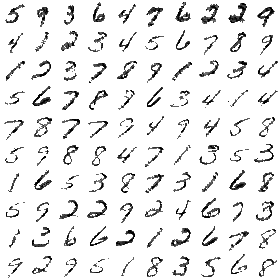 5 9 3 6 4 9 2 2 2 9
4 1 2 3 4 5 6 7 8 9
1 2 3 7 8 9 1 2 3 4
5 6 7 8 9 6 3 4 1 4
7 8 7 7 9 4 9 4 5 8
5 9 8 8 4 7 1 3 5 3
1 6 5 3 8 7 3 1 6 8
5 9 2 2 9 2 4 6 3
1 3 6 6 2 1 2 6 7 8
9 2 9 5 1 8 3 5 6 8